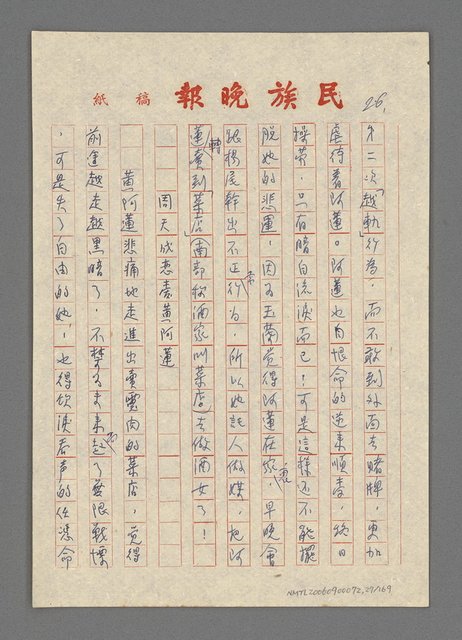 民族晚報 稿紙
26.
第二次「越軌」行為,而不敢到外面去賭牌,更加
虐待着阿蓮。阿蓮也自恨命的逆來順受,終日
操勞,只有暗自流淚而已!可是這樣还不能擺
脫她的悲運,因為玉蘭覺得阿蓮在家,早晚會
跟楊尾幹出不正常行為,所以她託人做媒,把阿
蓮轉賣到「菜店」(南部称酒家叫菜店)去做酒女了!
周天成恋 黄阿蓮
黄阿蓮悲痛地走進出賣靈肉的菜店,覺得
前途越走越黑暗了,不禁為未來起了無限戰慄
,可是失了自由的她,也得飲淚吞声的任憑命
NMTL20060900072,27/169